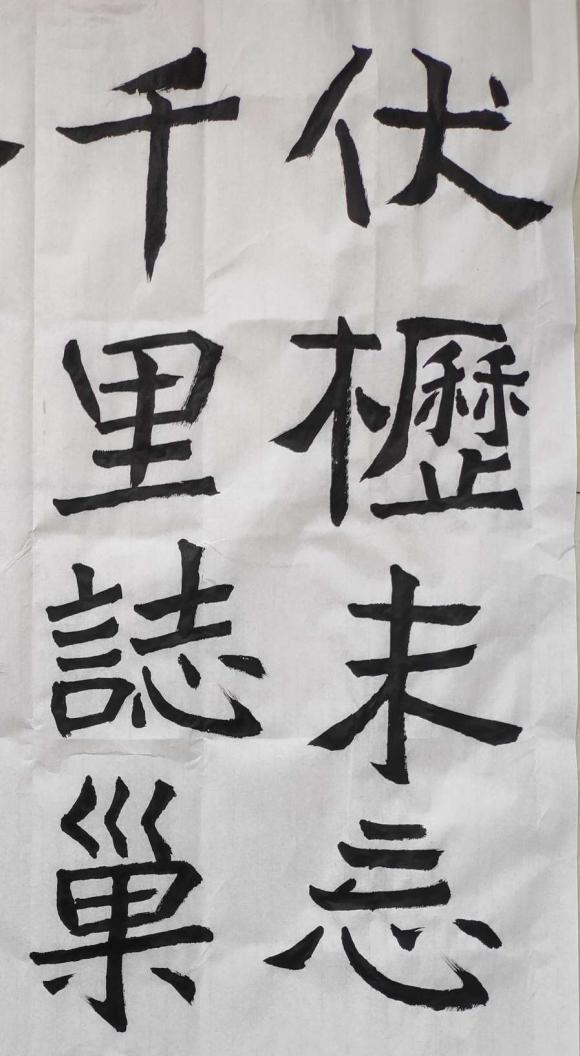 伏櫪未忘
千里誌巢